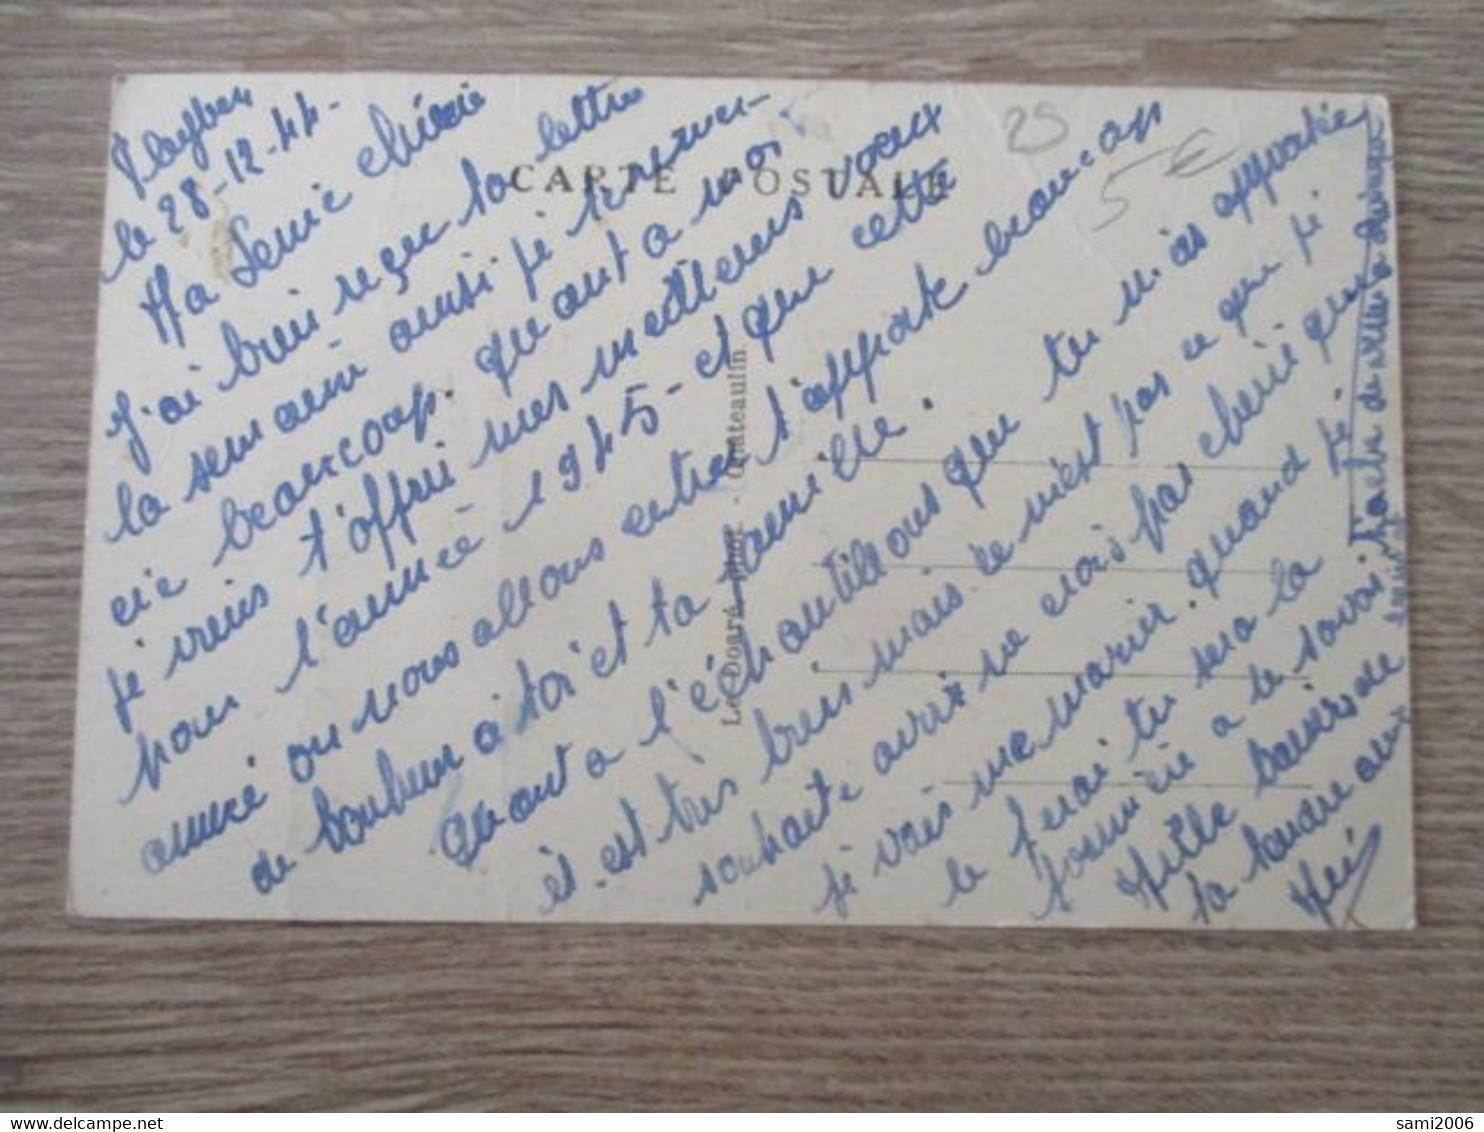 Pleyben
le 28-12-44-
Ma chérie
J'ai bien reçu ta lettre
la semaine aussi je te remer-
cie beaucoup. Quant a moi
je viens t'offrir mes meilleurs voeux
pour l'année 1945 - et que cette
année ou nous allons entrer t'apporte beaucoup
de bonheur a toi et ta famille.
Quant a l'échantillons que tu m'as apportée
est très bien mais ce n'est pas ce que je
souhaite avoir ne crois pas chérie que
je vais me marier. quand je
le ferai tu sera la
première a le savoir.
Mille baisers de
ta
CARTE POSTALE
Le Doaré, phot. - Châteaulin
25
5€
sami2006